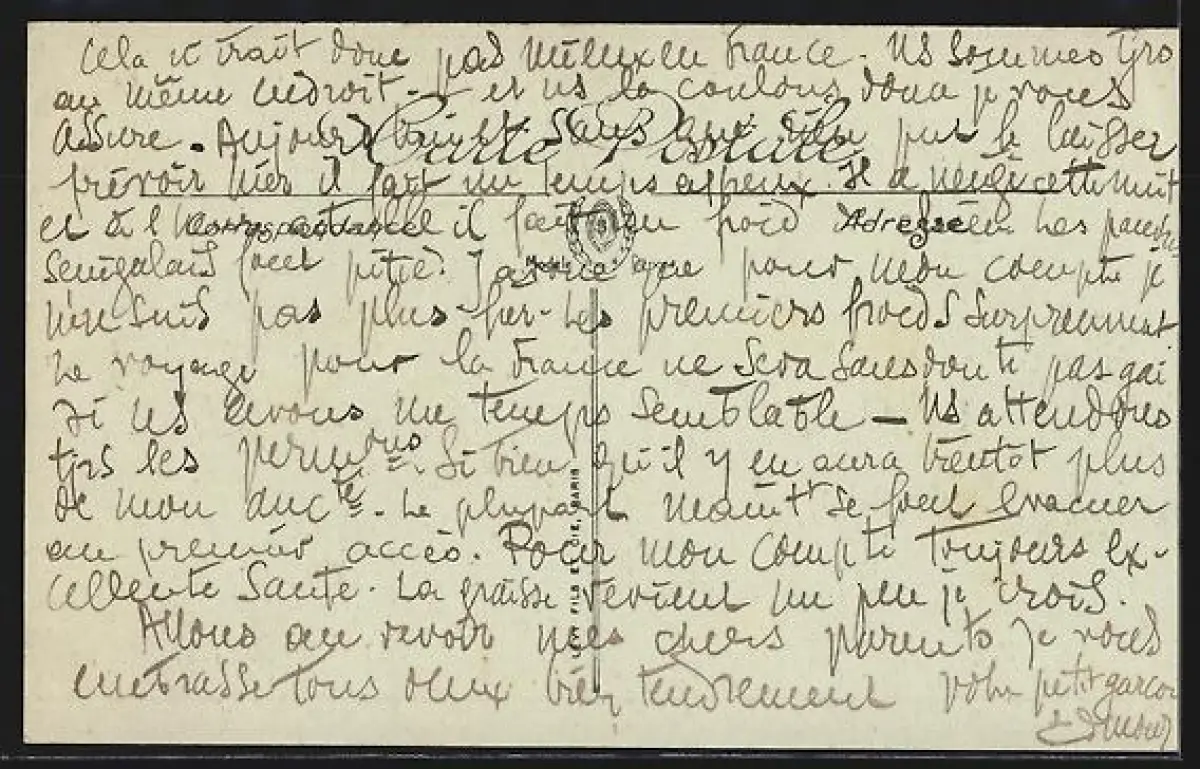 Cela n'irait donc pas mieux en France. Ns sommes tjrs
au même endroit. - et ns la coulons douce je vous
assure. Aujourd'hui sans que rien put le laisser
prévoir hier il fait un temps affreux. Il a neigé cette nuit
et à l' il fait un froid Les pauvres
Sénégalais font pitié. J'avoue que pour mon compte je
n'en suis pas plus fier. Les premiers froids surprennent.
Le voyage pour la France ne sera sans doute pas gai
si ns avons un temps semblable - Ns attendons
tjrs les permons. Si bien qu'il y en aura bientôt plus
de mon anc.té. La plupart maint se font évacuer
au premier accès. Pour mon compte toujours ex-
cellente santé. La graisse revient un peu je crois.
Allons au revoir mes chers parents je vous
embrasse tous deux bien tendrement votre petit garçon
Edmond
Carte Postale
Correspondance
Adresse
FILS & CIE, PARIS